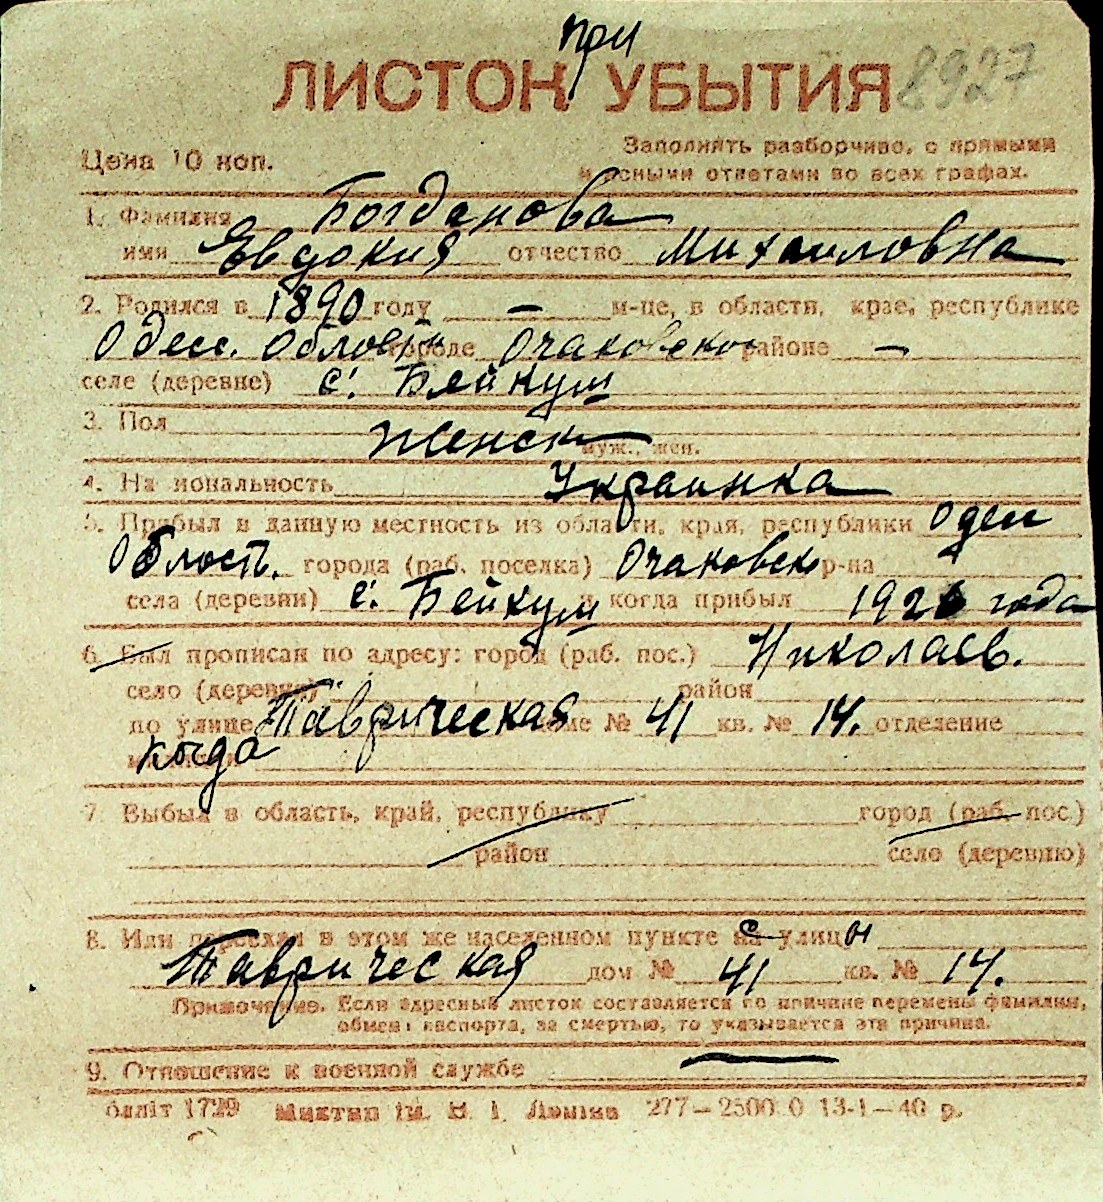 при
ЛИСТОК УБЫТИЯ 8927
Цена 10 коп.
Заполнять разборчиво, с прямыми
и ясными ответами во всех графах.
1. Фамилия Богданова
имя Евдокия отчество Михайловна
2. Родился в 1890 году — м-це, в области, крае, республике
Одесс. област городе Очаковско районе —
селе (деревне) с. Бейкуш
3. Пол Женск
муж., жен.
4. Национальность Украинка
5. Прибыл в данную местность из области, края, республики Одесс
Область. города (раб. поселка) Очаковско р-на
села (деревни) с. Бейкуш и когда прибыл 1926 года
6. Был прописан по адресу: город (раб. пос.) Николаев.
село (деревня) район
по улице Таврическая доме № 41 кв. № 14. отделение
когда
7. Выбыл в область, край, республику город (раб. пос.)
район село (деревню)
8. Или переехал в этом же населенном пункте на с улицы
Таврическая дом № 41 кв. № 14.
Примечание. Если адресный листок составляется по причине перемены фамилии,
обмена паспорта, за смертью, то указывается эта причина.
9. Отношение к военной службе —
блліт 1729 Миктип ім. В. І. Леніна 277—2500.0 13-1—40 р.